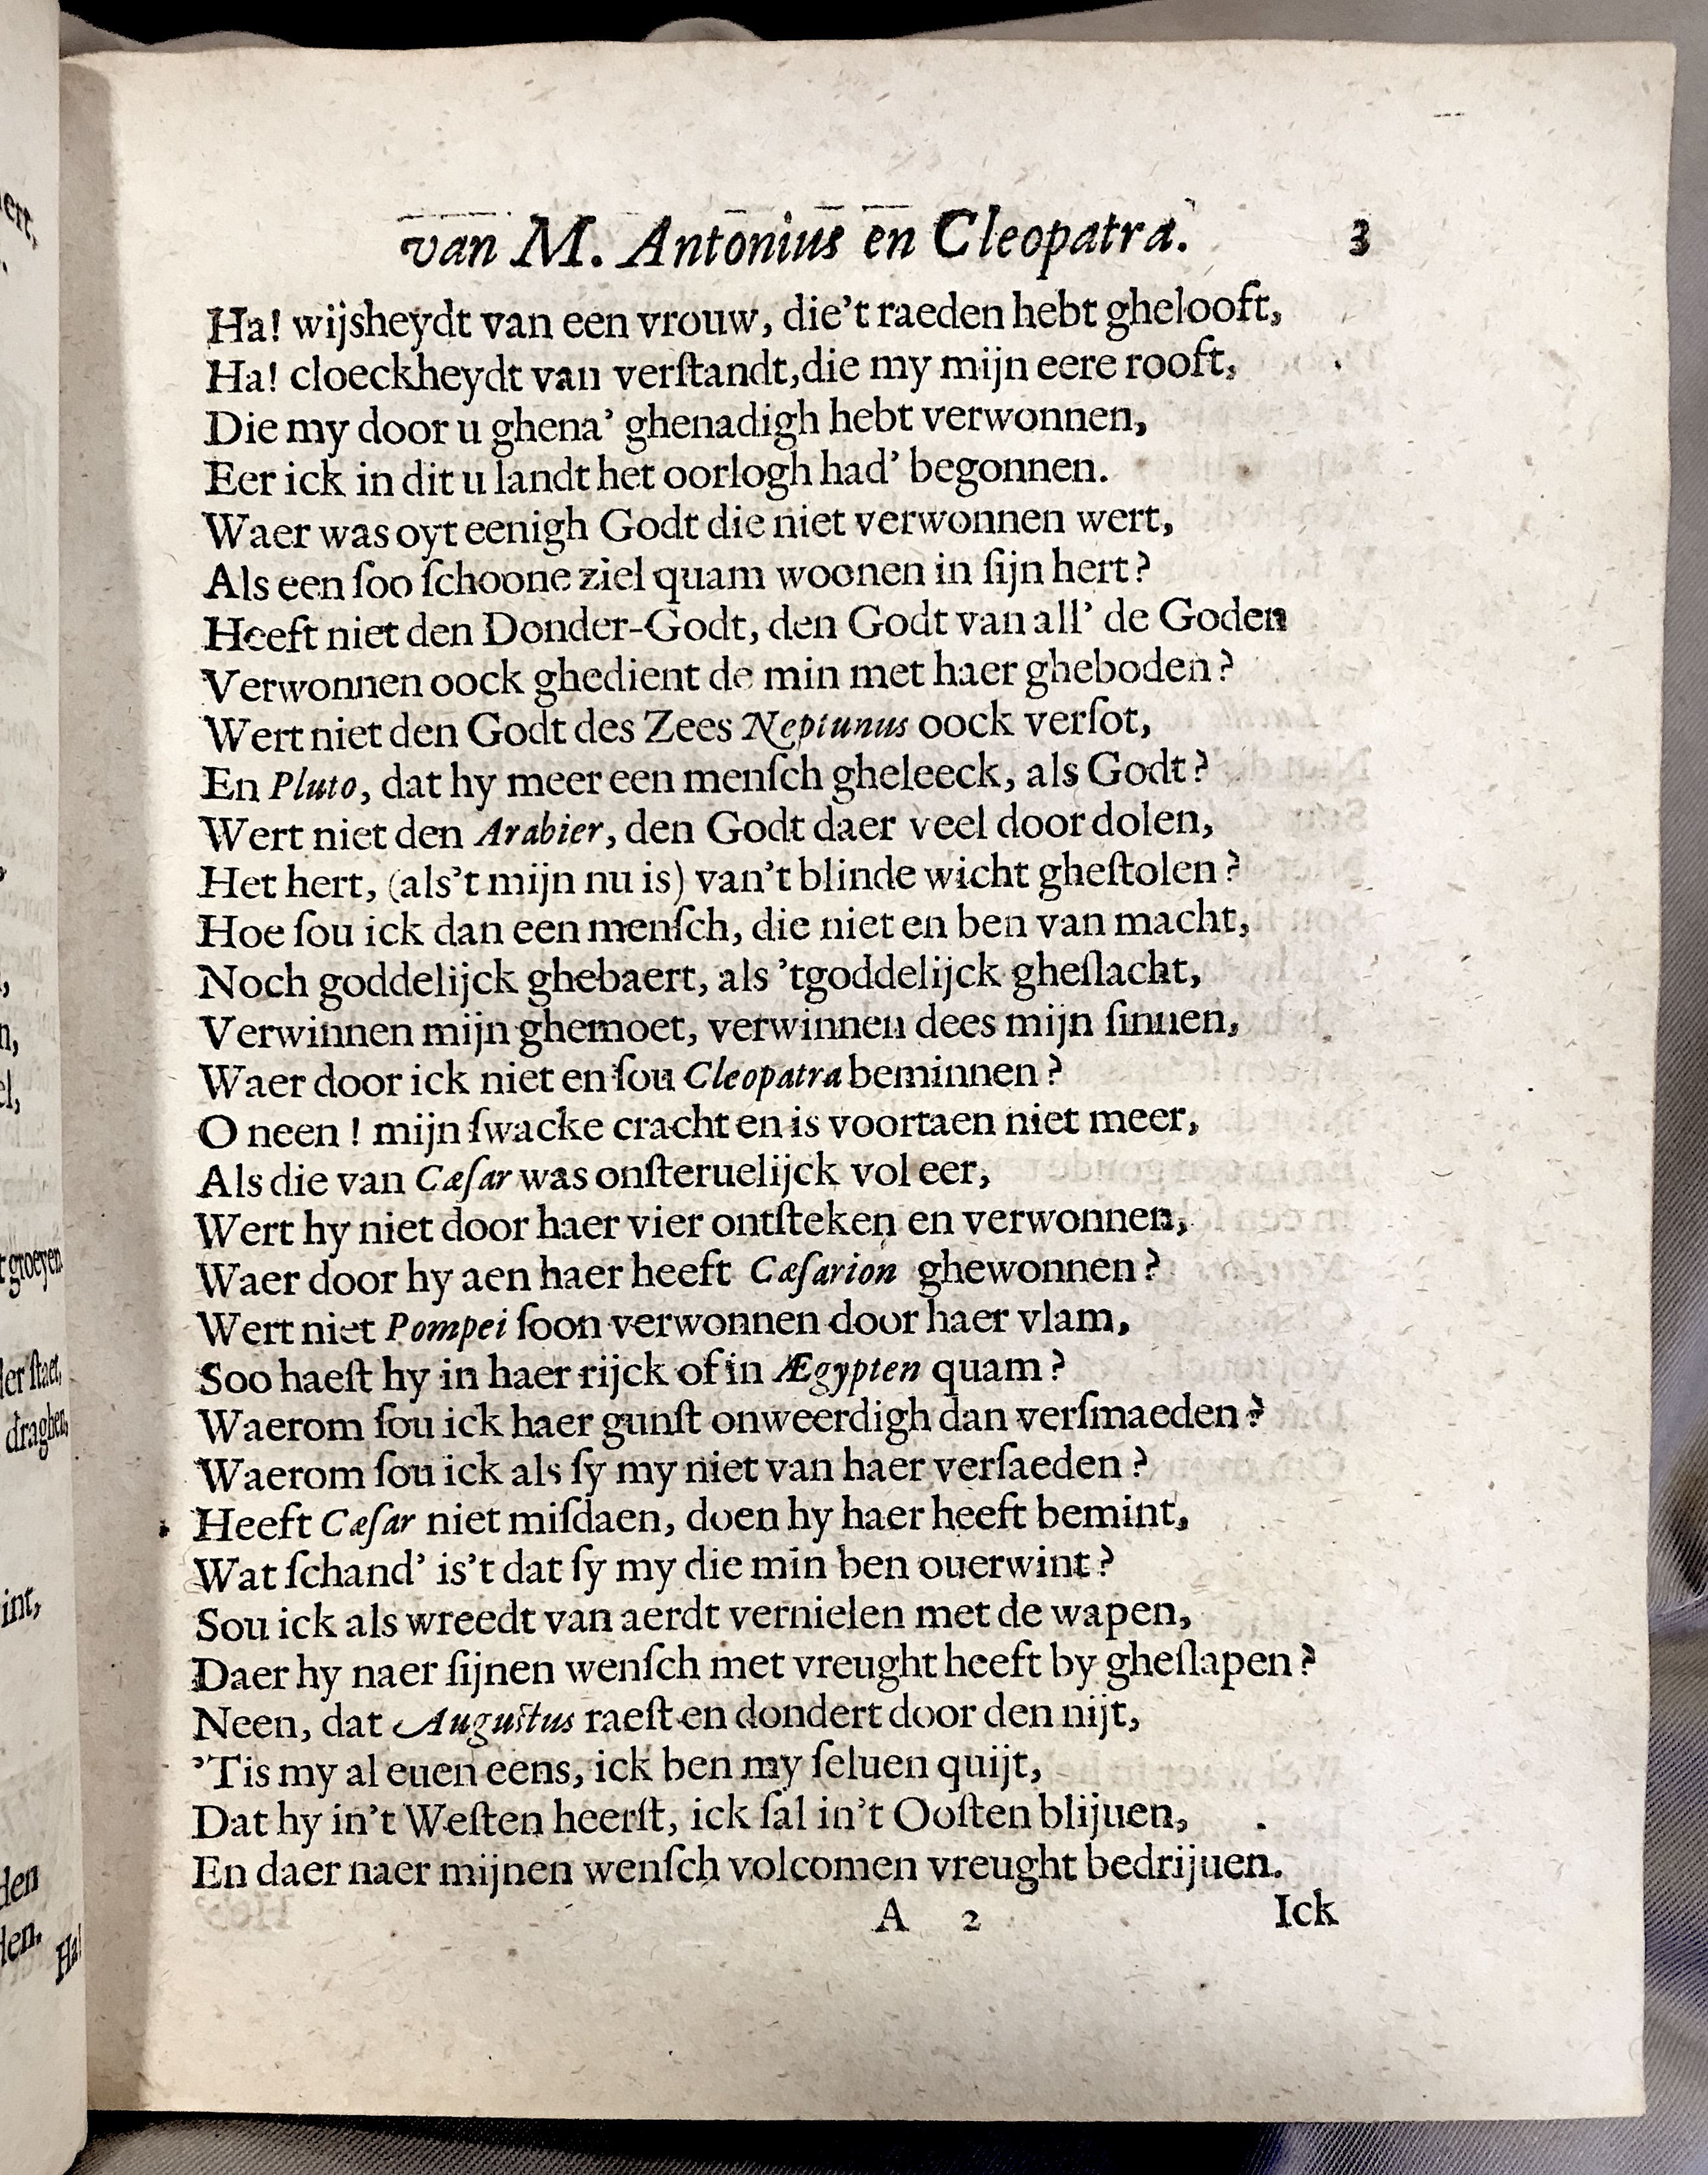 van M. Antonius en Cleopatra. 3
Ha! wijsheydt van een vrouw, die't raeden hebt ghelooft,
Ha! cloeckheydt van verſtandt, die my mijn eere rooft,
Die my door u ghena' ghenadigh hebt verwonnen,
Eer ick in dit u landt het oorlogh had' begonnen.
Waer was oyt eenigh Godt die niet verwonnen wert,
Als een ſoo ſchoone ziel quam woonen in ſijn hert?
Heeft niet den Donder-Godt, den Godt van all' de Goden
Verwonnen oock ghedient de min met haer gheboden?
Wert niet den Godt des Zees Neptunus oock verſot,
En Pluto, dat hy meer een menſch gheleeck, als Godt?
Wert niet den Arabier, den Godt daer veel door dolen,
Het hert, (als't mijn nu is) van't blinde wicht gheſtolen?
Hoe ſou ick dan een menſch, die niet en ben van macht,
Noch goddelijck ghebaert, als 'tgoddelijck gheſlacht,
Verwinnen mijn ghemoet, verwinnen dees mijn ſinnen,
Waer door ick niet en ſou Cleopatra beminnen?
O neen! mijn ſwacke cracht en is voortaen niet meer,
Als die van Cæſar was onſteruelijck vol eer,
Wert hy niet door haer vier ontſteken en verwonnen,
Waer door hy aen haer heeft Cæſarion ghewonnen?
Wert niet Pompei ſoon verwonnen door haer vlam,
Soo haeſt hy in haer rijck of in Ægypten quam?
Waerom ſou ick haer gunſt onweerdigh dan verſmaeden?
Waerom ſou ick als ſy my niet van haer verſaeden?
Heeft Cæſar niet miſdaen, doen hy haer heeft bemint,
Wat ſchand' is't dat ſy my die min ben ouerwint?
Sou ick als wreedt van aerdt vernielen met de wapen,
Daer hy naer ſijnen wenſch met vreught heeft by gheſlapen?
Neen, dat Auguſtus raeſt en dondert door den nijt,
'Tis my al euen eens, ick ben my ſeluen quijt,
Dat hy in't Weſten heerſt, ick ſal in't Ooſten blijuen,
En daer naer mijnen wenſch volcomen vreught bedrijuen.
A 2 Ick